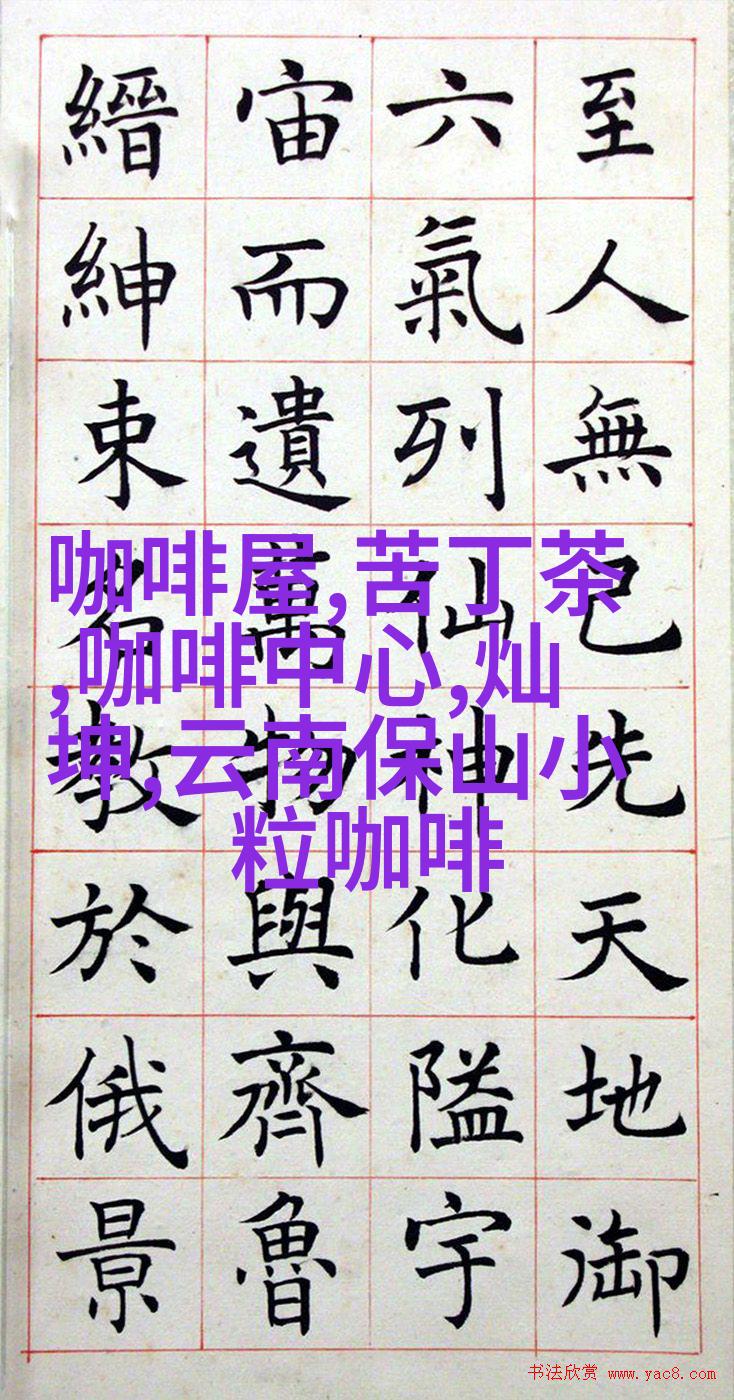 至人無己先天地御
六氣列仙神化隘宇
宙而遺萬物與齊魯
縉紳束名教於俄景
咖啡屋,苦丁茶
,咖啡中心,灿
坤,云南保山小
粒咖啡
书法欣赏 www.yac8.com